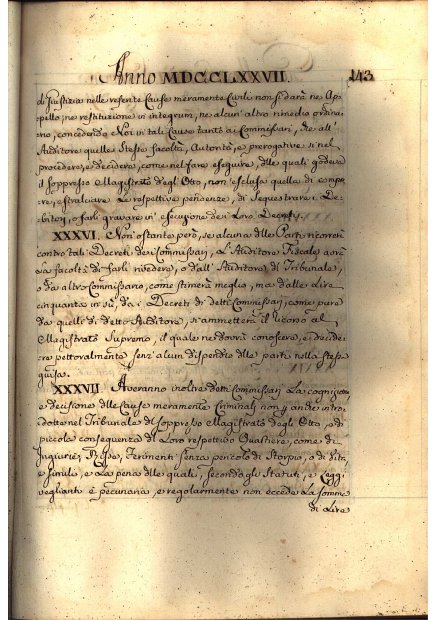 Anno MDCCLXXVII. 143
di Giustizia nelle referite Cause meramente Civili non si darà ne Ap-
pello, ne restituzione in integrum, ne alcun'altro rimedio ordina-
rio, concedendo Noi in tali Cause tanto ai Commissari, che all'
Auditore quelle Stesse facoltà, Autorità, e prerogative sì nel
procedere, e decidere, come nel fare eseguire, delle quali godeva
il soppresso Magistrato degl'Otto, non esclusa quella di
re, estralciare Le respettive pendenze, di Sequestrare i De-
bitori, o farli gravare in esecuzione dei Loro
XXXVI. Non ostante però, se alcuna delle Parti ricorrerà
contro tali Decreti dei Commissari, L'Auditore Fiscale avrà
La facoltà di farli rivedere, o dall'Auditore di Tribunale,
o da altro Commissario, come stimerà meglio, ma dalle Lire
cinquanta in sù, da i Decreti di detti Commissari, come pure
da quelli di detto Auditore, si ammetterà il ricorso al
Magistrato Supremo, il quale ne dovrà conoscere, e decide-
re pettoralmente senz'alcun dispendio delle parti nella stessa
guisa.
XXXVII. Averanno inoltre detti Commissari La cognizione
e decisione delle Cause meramente Criminali non già anche intro-
dotte nel Tribunale di soppresso Magistrato degli Otto, e di
piccola conseguenza del Loro respettivo Quartiere, come di
Ingiurie, Risse, Ferimenti senza pericolo di Storpio, o di Vita
e simili, e La pena delle quali, secondo gli Statuti, e Leggi
veglianti è pecuniaria, e regolarmente non eccede La somma
di Lire